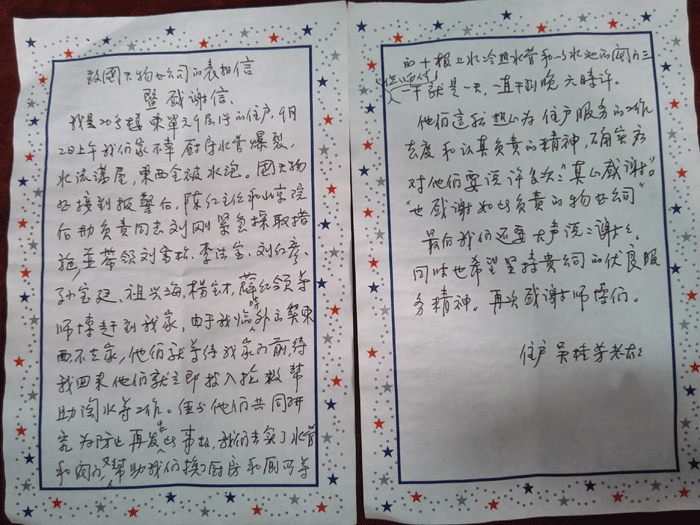 致國天物业公司的表扬信
暨感谢信.
我是20号楼東單元1层1号的住户,9月
2日上午我们家不幸厨房水管爆裂,
水流满屋,東西全被水泡。國天物
业接到报警后,陈红主任和山京院
后勤负责同志刘刚紧急採取措
施,並带领刘、李、刘红彦、
孙宝廷、祖兴海、楊、薛红领等
师博赶到我家,由于我临時外出买東
西不在家,他们就等待我家门前,待
我回来他们就立即投入抢救帮
助淘水等工作。后他们共同研
究为防止再发生此事故,我们去买了水管
和阀门又帮助我们换了厨房和厕所等
的十根上水冷热水管和一个水池的阀门三
个一干就是一天,一直干到晚六時许。
他们這种热心为住户服务的工作
态度和认真负责的精神,确实应
对他们要说许多次:"真心感谢"。
"也感谢如此负责的物业公司"
最后我们还要大声说:谢谢.
同时也希望坚持贵公司的优良服
务精神。再次感谢师博们。
住户吴桂芳老太